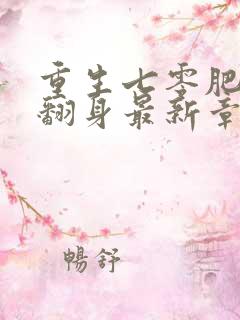 重生七零肥
翻身最新章
暢舒